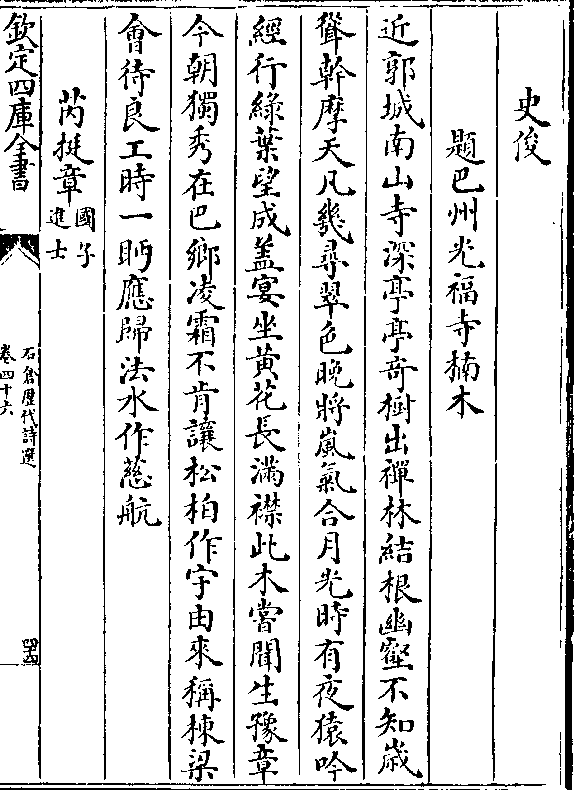 史俊
題巴州光福寺楠木
近郭城南山寺深亭亭奇樹出禪林結根幽壑不知歳
聳幹摩天凡㡬尋翠色晚將嵐氣合月光時有夜猿吟
經行綠葉望成葢宴坐黄花長滿襟此木嘗聞生豫章
今朝獨秀在巴鄉凌霜不肯讓松柏作宇由來稱棟梁
會待良工時一眄應歸法水作慈航
芮挺章國子進士
欽定四庫全書
石倉歴代詩選
卷四十六
四十四